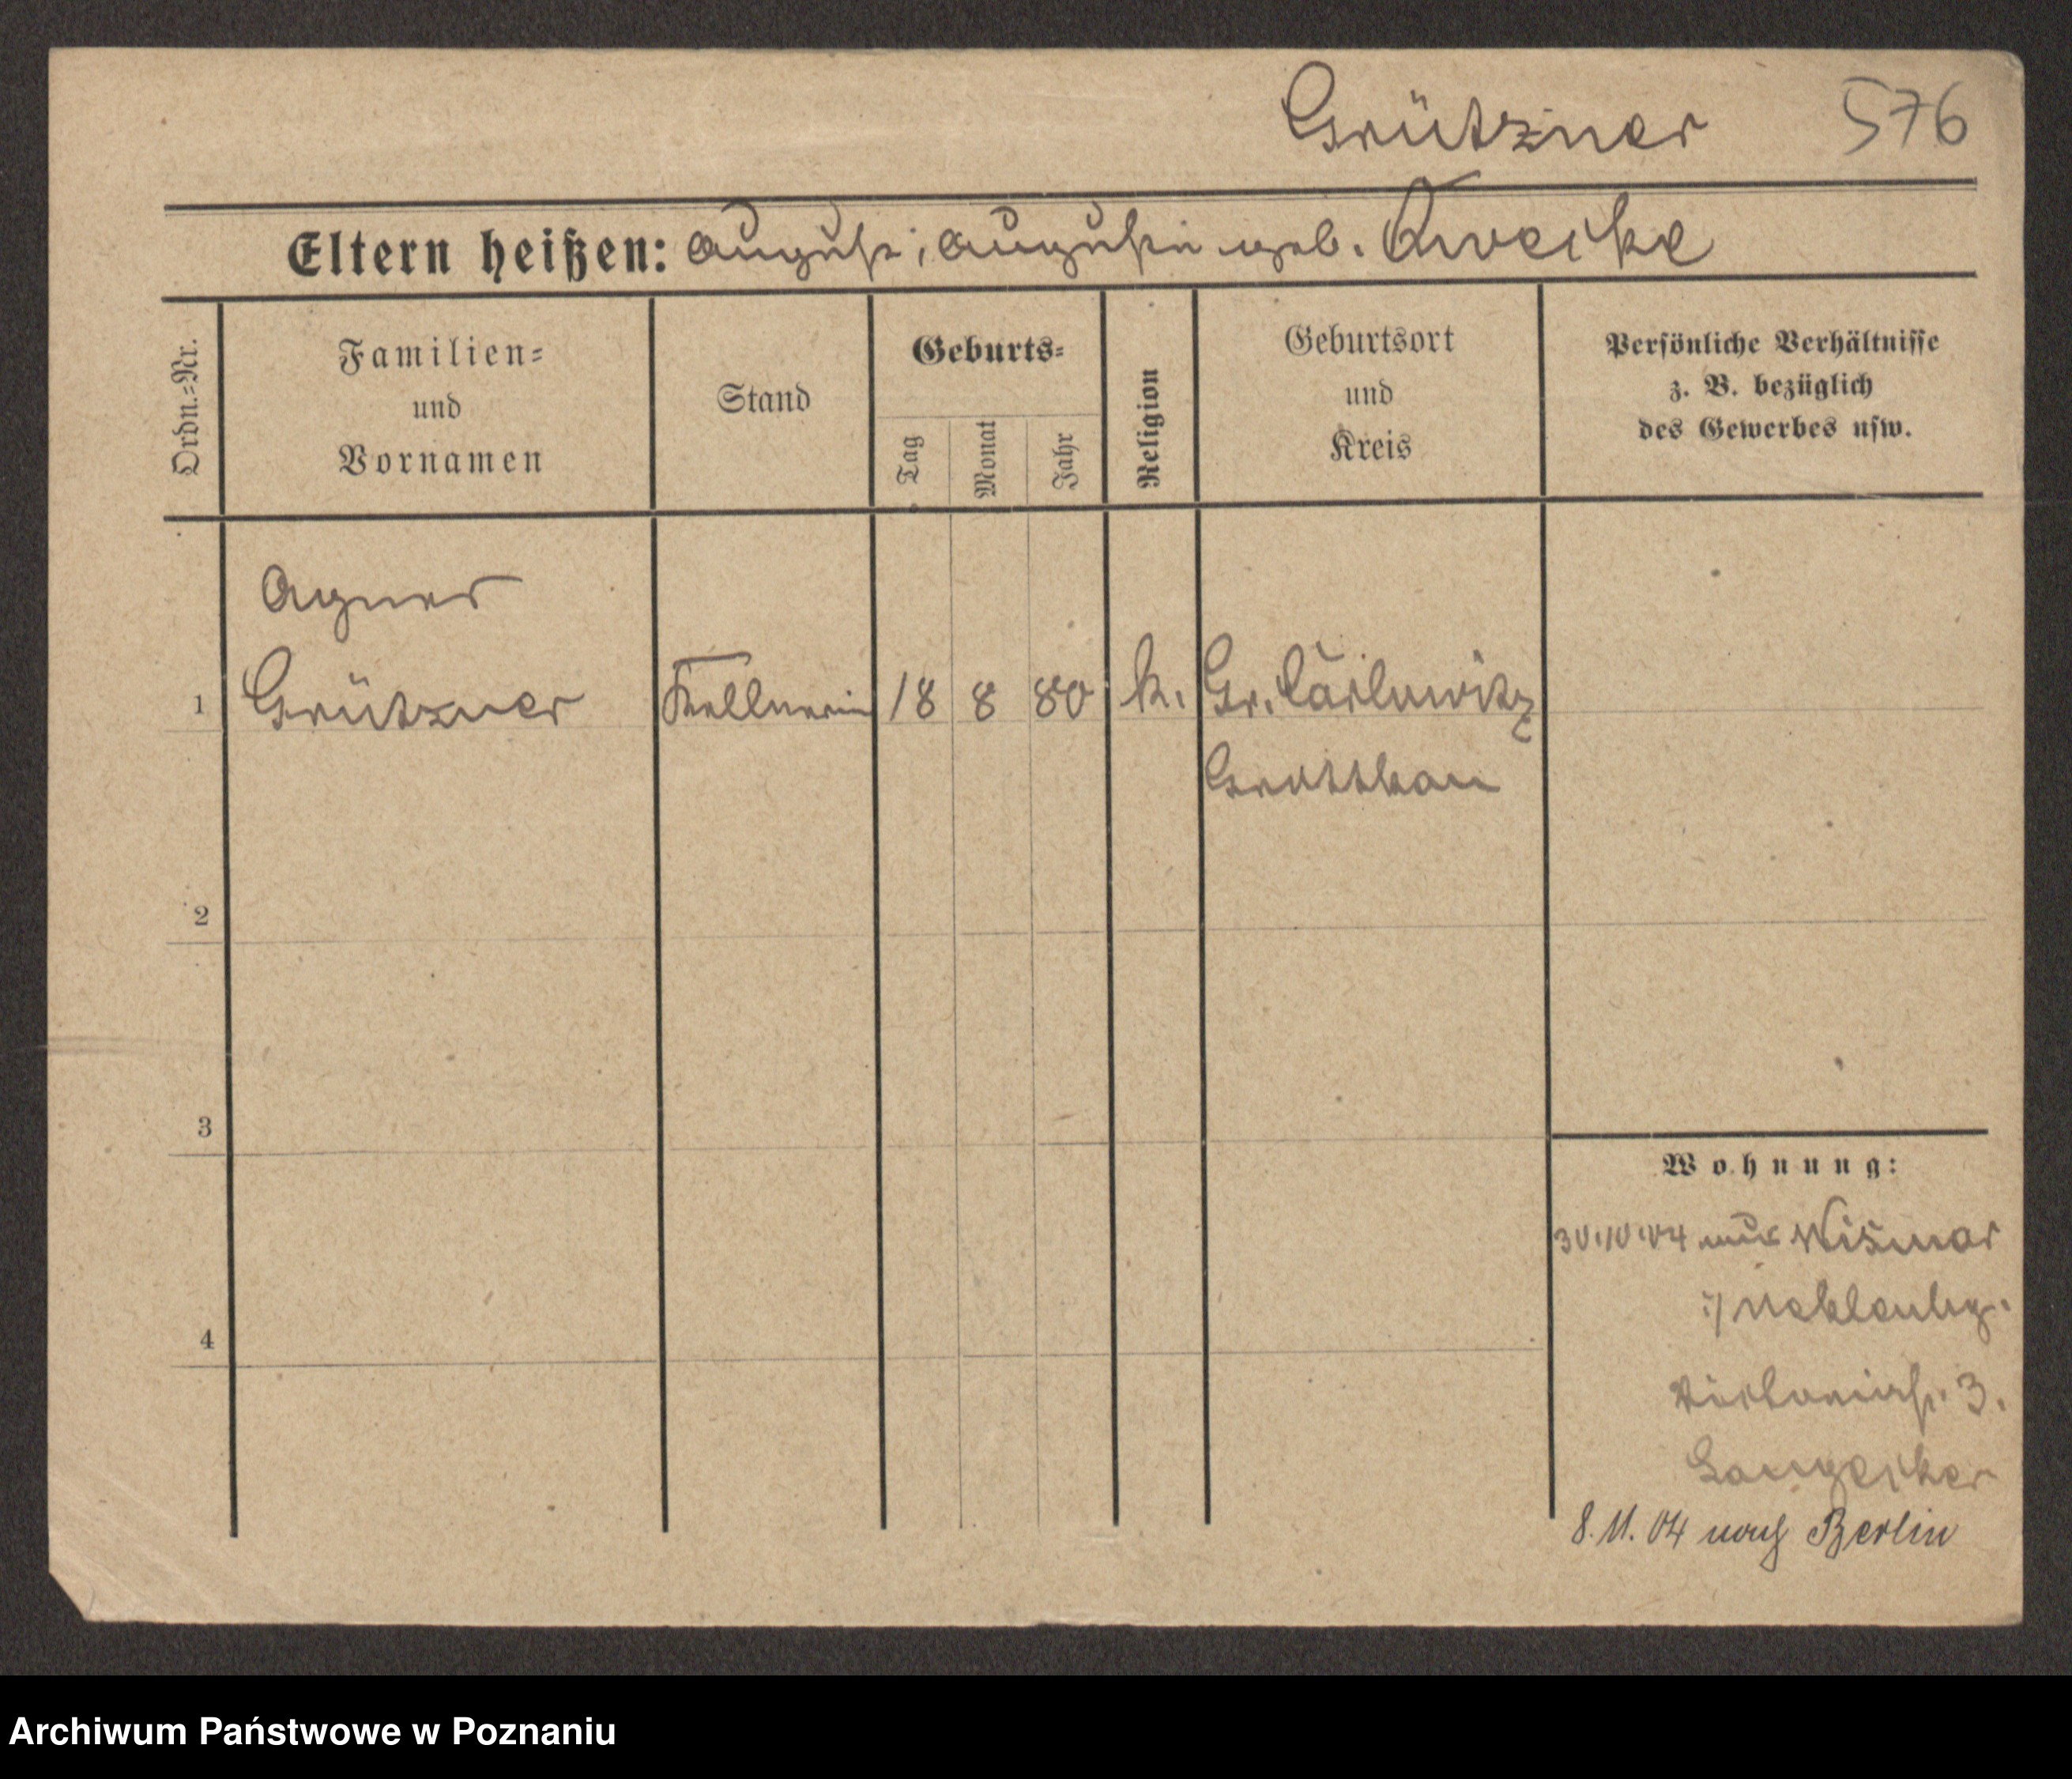 Grützner 576
Eltern heißen: August; August geb.
Ordn.=Nr.
Familien=
und
Vornamen
Stand
Geburts=
Tag
Monat
Jahr
Religion
Geburtsort
und
Kreis
Persönliche Verhältnisse
z. B. bezüglich
des Gewerbes usw.
Agnes
1 Grützner Kellnerin 18 8 80 k. Gr. Carlowitz
Grottkau
2
3
4
Wohnung:
30.10.04 aus Wismar
i/ Meklenbg.
3.
8.11.04 nach Berlin
Archiwum Państwowe w Poznaniu